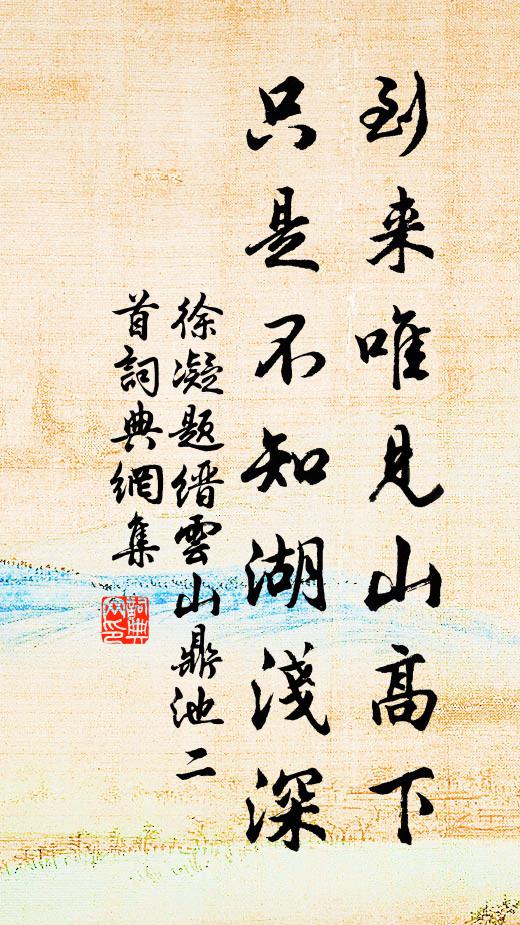 到来唯見山高下
只是不知湖淺深
徐凝題缙雲山鼎池二
首詞典網集
詞典